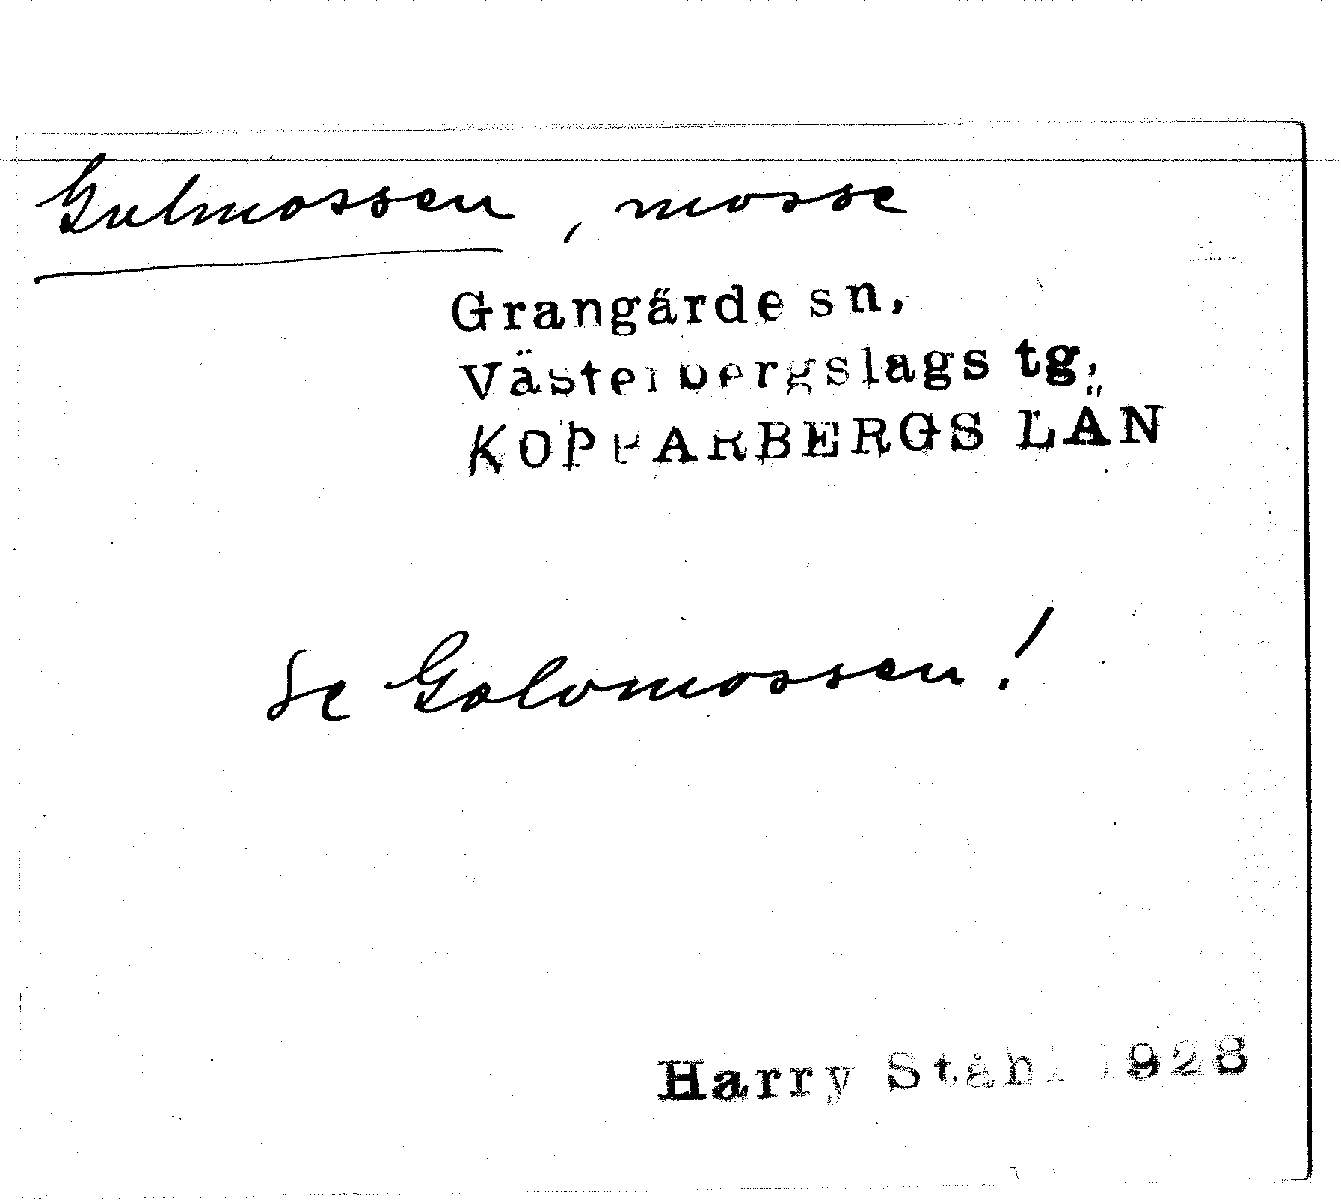 Gulmossen, mosse
Grangärde sn,
Västerbergslags tg,
KOPPARBERGS LÄN
Se Golvmossen!
Harry Ståhl 1928